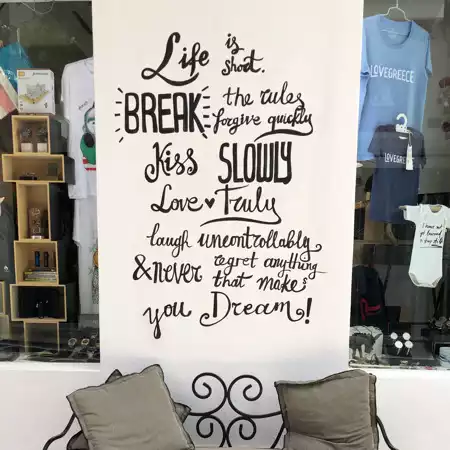 Life is short.
BREAK the rules
forgive quickly
Kiss SLOWLY
Love Truly
laugh uncontrollably
& never regret anything
that makes
you Dream!
LOVEGREECE
LOVEGREECE